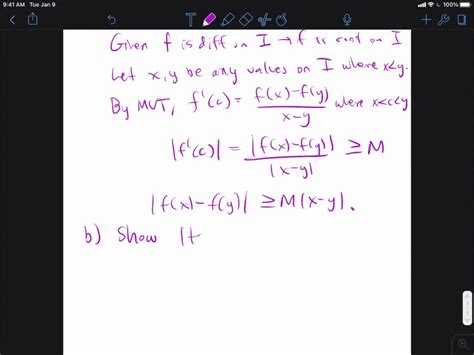 9:41 AM Tue Jan 9
Given f is diff on I → f is cont on I
Let x,y be any values on I where x<y.
By MVT, f'(c) = f(x)-f(y) / x-y where x<c<y
|f'(c)| = |f(x)-f(y)| / |x-y| ≥ M
|f(x)-f(y)| ≥ M|x-y|.
b) Show |t